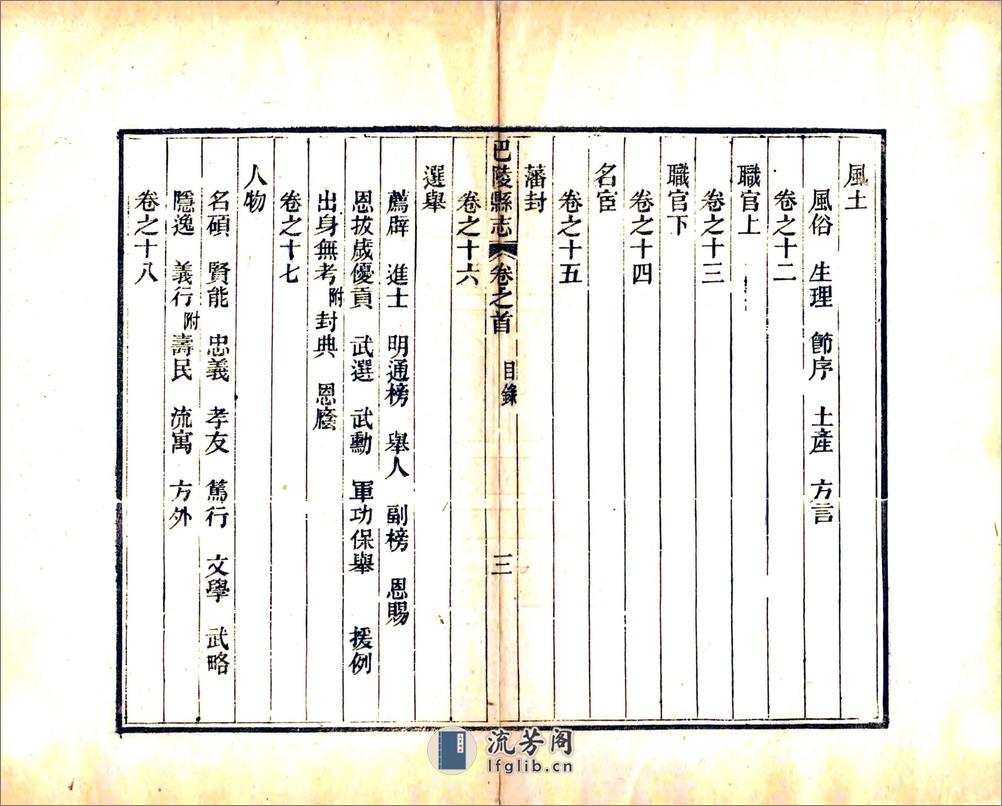 風土
風俗 生理 節序 土產 方言
卷之十二
職官上
卷之十三
職官下
卷之十四
名宦
卷之十五
藩封
巴陵縣志 卷之首 目錄 三
卷之十六
選舉
薦辟 進士 明通榜 舉人 副榜 恩賜
恩拔歲優貢 武選 武勳 軍功保舉 援例
出身無考附封典 恩廕
卷之十七
人物
名碩 賢能 忠義 孝友 篤行 文學 武略
隱逸 義行附壽民 流寓 方外
卷之十八
流芳阁
lfglib.cn